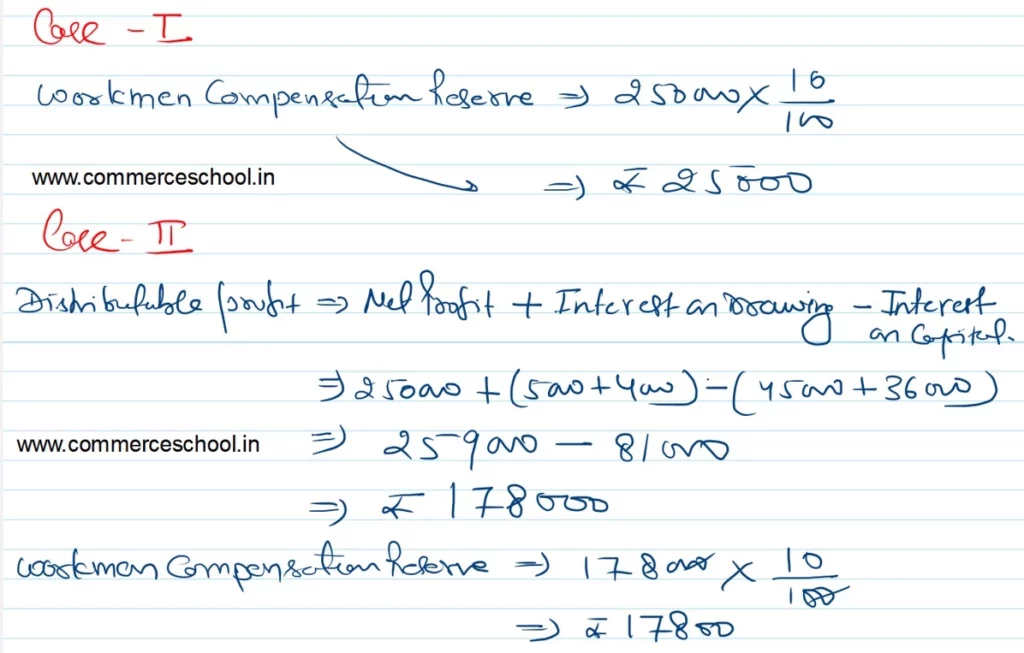 Case - I
Workmen Compensation Reserve ⇒ 250000 × 10/100
www.commerceschool.in
⇒ ₹ 25000
Case - II
Distributable profit ⇒ Net Profit + Interest on Drawing - Interest on Capital.
⇒ 250000 + (5000 + 4000) - (45000 + 36000)
www.commerceschool.in
⇒ 259000 - 81000
⇒ ₹ 178000
Workmen Compensation Reserve ⇒ 178000 × 10/100
⇒ ₹ 17800